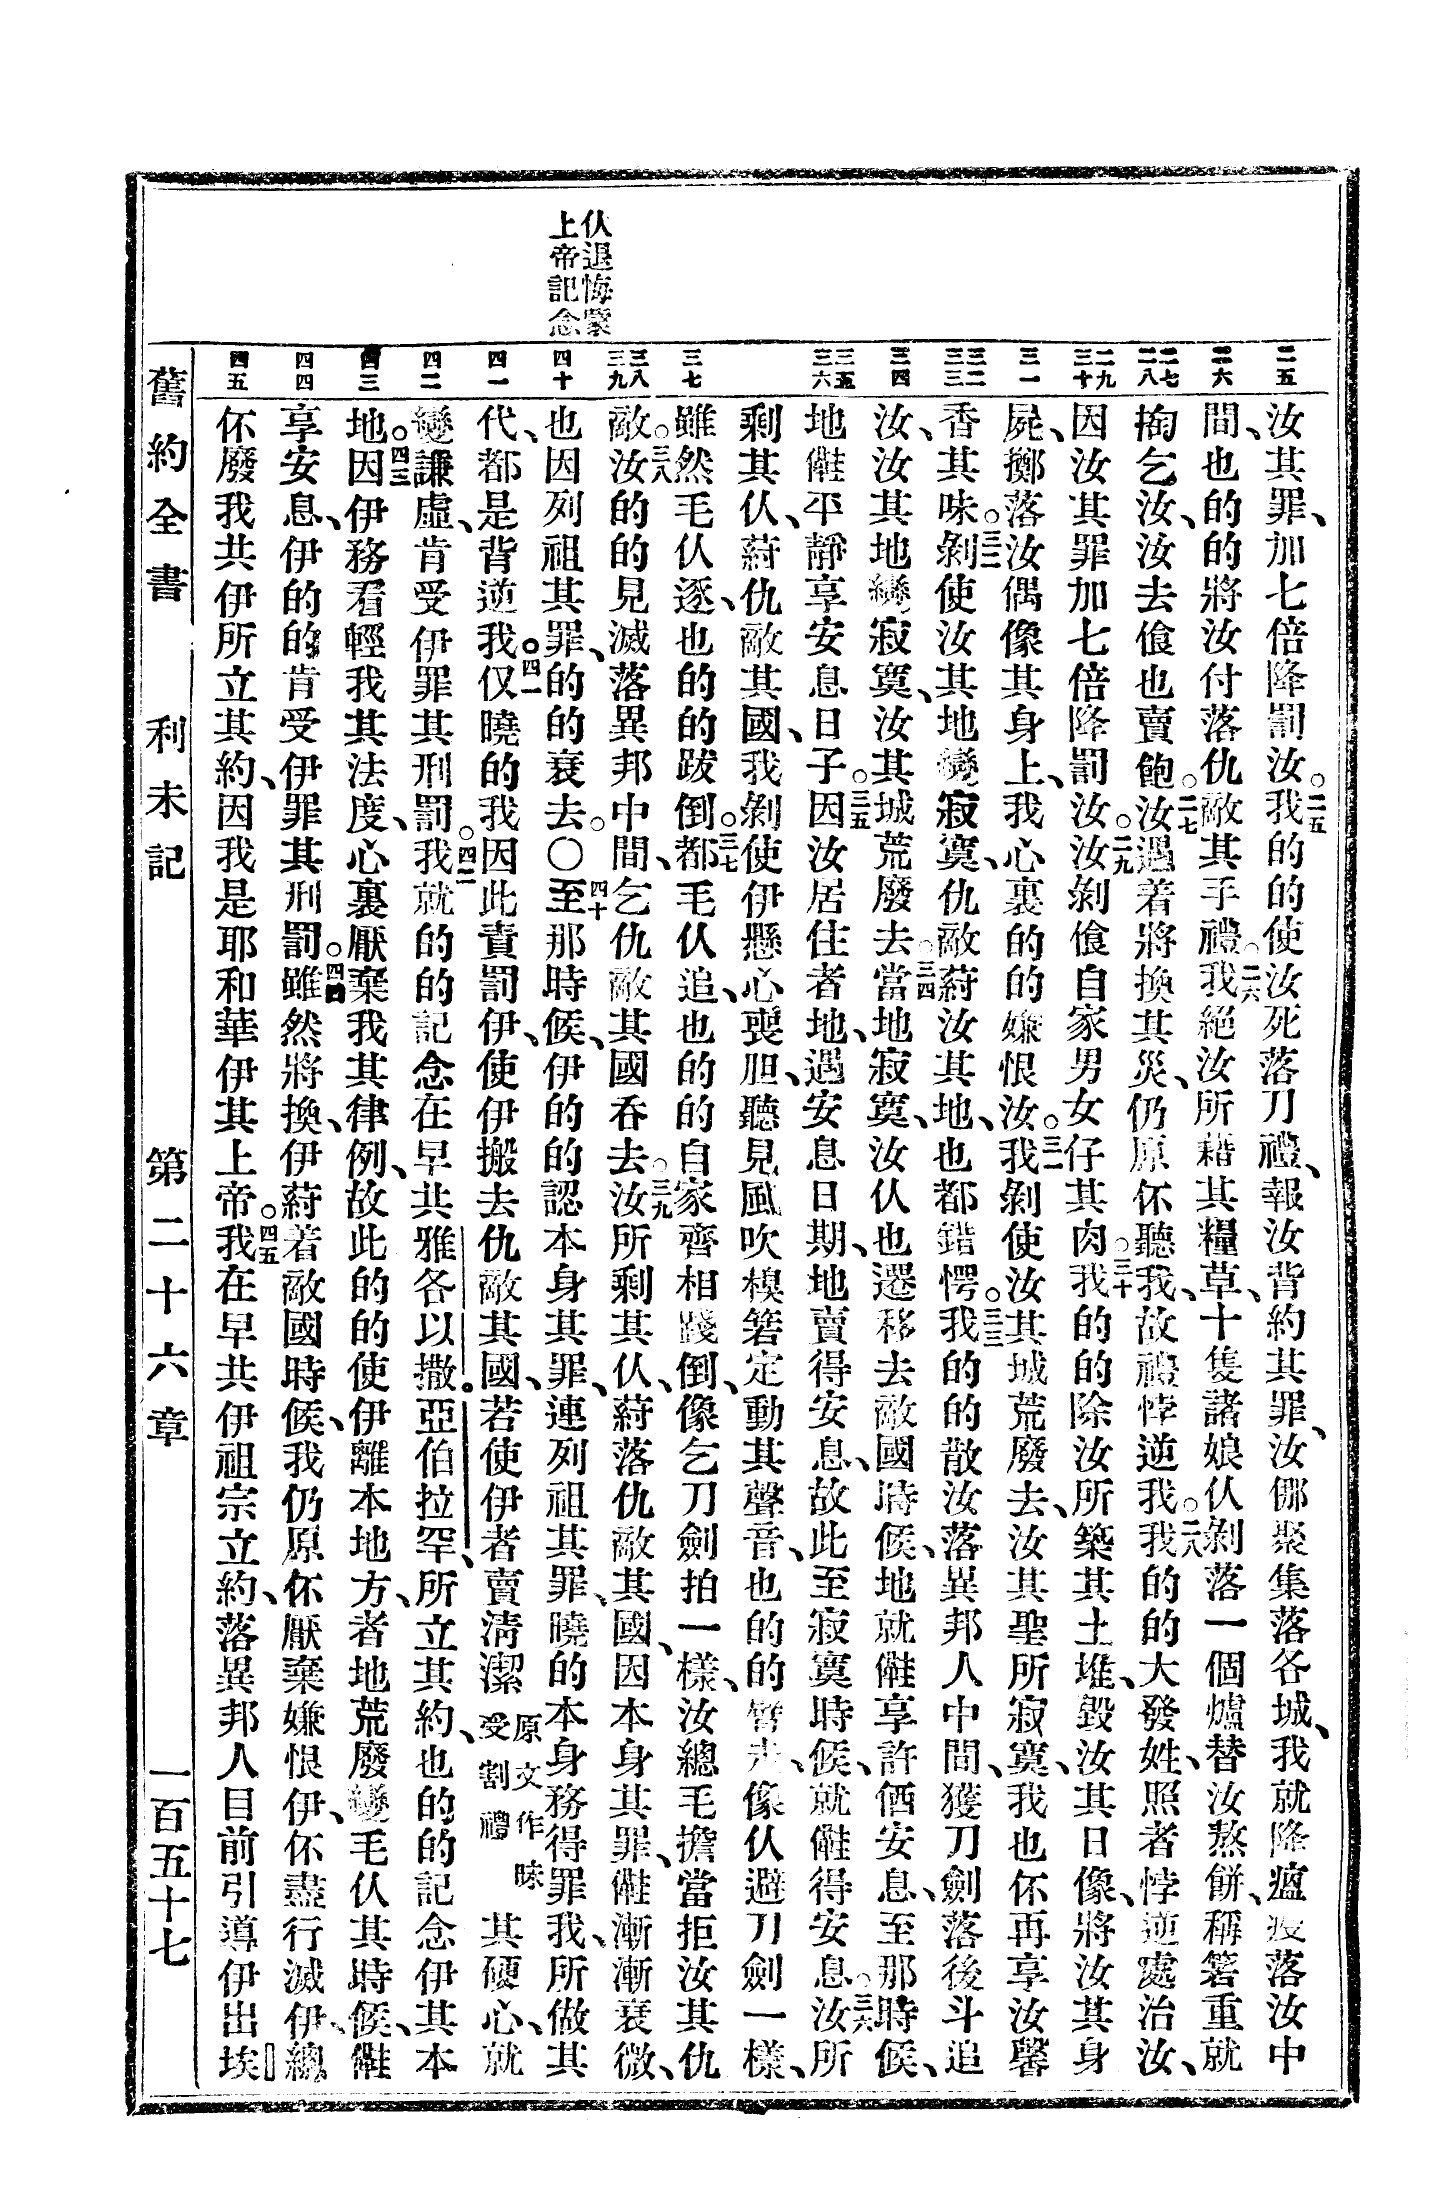 仈退悔蒙
上帝記念
二五
二六
二七 二八
二九 三十
三一
三二 三三
三四
三五 三六
三七
三八 三九
四十
四一
四二
四三
四四
四五
汝其罪、加七倍降罰汝。二五我的的使汝死落刀禮、報汝背約其罪、汝㑚聚集落各城、我就降瘟疫落汝中
間、也的的將汝付落仇敵其手禮。二六我絕汝所藉其糧草、十隻諸娘仈剝落一個爐替汝熬餅、稱箬重就
掏乞汝、汝去飡也賣飽。二七汝遇着將換其災、仍原伓聽我、故禮悖逆我。二八我的的大發姓、照者悖逆處治汝、
因汝其罪加七倍降罰汝。二九汝剝飡自家男女仔其肉。三十我的的除汝所築其土堆、毀汝其日像、將汝其身
屍、擲落汝偶像其身上、我心裏的的嫌恨汝。三一我剝使汝其城荒廢去、汝其聖所寂寞、我也伓再享汝馨
香其味。三二剝使汝其地變寂寞、仇敵䈜汝其地、也都錯愕。三三我的的散汝落異邦人中間、獲刀劍落後斗追
汝、汝其地變寂寞、汝其城荒廢去。三四當地寂寞、汝仈也遷移去敵國時候、地就䧹享許価安息、至那時候、
地䧹平靜享安息日子。三五因汝居住者地、遇安息日期、地賣得安息、故此至寂寞時候、就䧹得安息。三六汝所
剩其仈、䈜仇敵其國、我剝使伊懸心喪胆、聽見風吹模箬定動其聲音、也的的走、像仈避刀劍一樣、
雖然毛仈逐、也的的跋倒。三七都毛仈追、也的的自家齊相踐倒、像乞刀劍拍一樣、汝總毛擔當拒汝其仇
敵。三八汝的的見滅落異邦中間、乞仇敵其國吞去。三九汝所剩其仈、䈜落仇敵其國、因本身其罪、䧹漸漸衰微、
也因列祖其罪、的的衰去。〇四十至那時候、伊的的認本身其罪、連列祖其罪、曉的本身務得罪我、所做其
代、都是背逆我。四一仅曉的我因此責罰伊、使伊搬去仇敵其國、若使伊者賣淸潔原文作昧受割禮其硬心、就
變謙虛、肯受伊罪其刑罰。四二我就的的記念在早共雅各以撒。亞伯拉罕、所立其約、也的的記念伊其本
地。四三因伊務看輕我其法度、心裏厭棄我其律例、故此的的使伊離本地方、者地荒廢變毛仈其時候、䧹
享安息、伊的的肯受伊罪其刑罰。四四雖然將換、伊䈜着敵國時候、我仍原伓厭棄嫌恨伊、伓盡行滅伊、總
伓廢我共伊所立其約、因我是耶和華伊其上帝。四五我在早共伊祖宗立約、落異邦人目前引導伊出埃
舊約全書 利未記 第二十六章 一百五十七